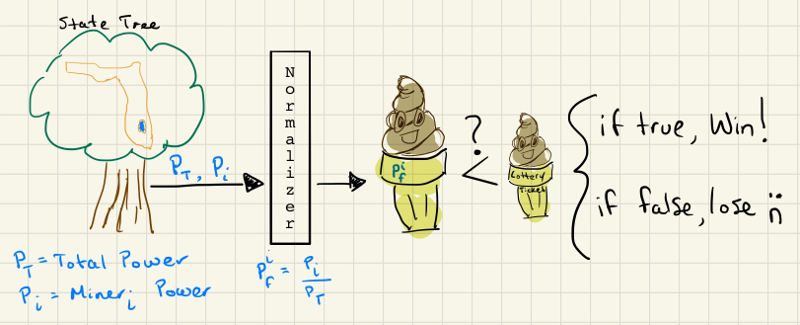 State Tree
Normalizer
P_T, P_i
P_f^i
?
<
Lottery
Ticket
if true, Win!
if false, lose :(
P_T = Total Power
P_i = Miner_i Power
P_f^i = P_i / P_T